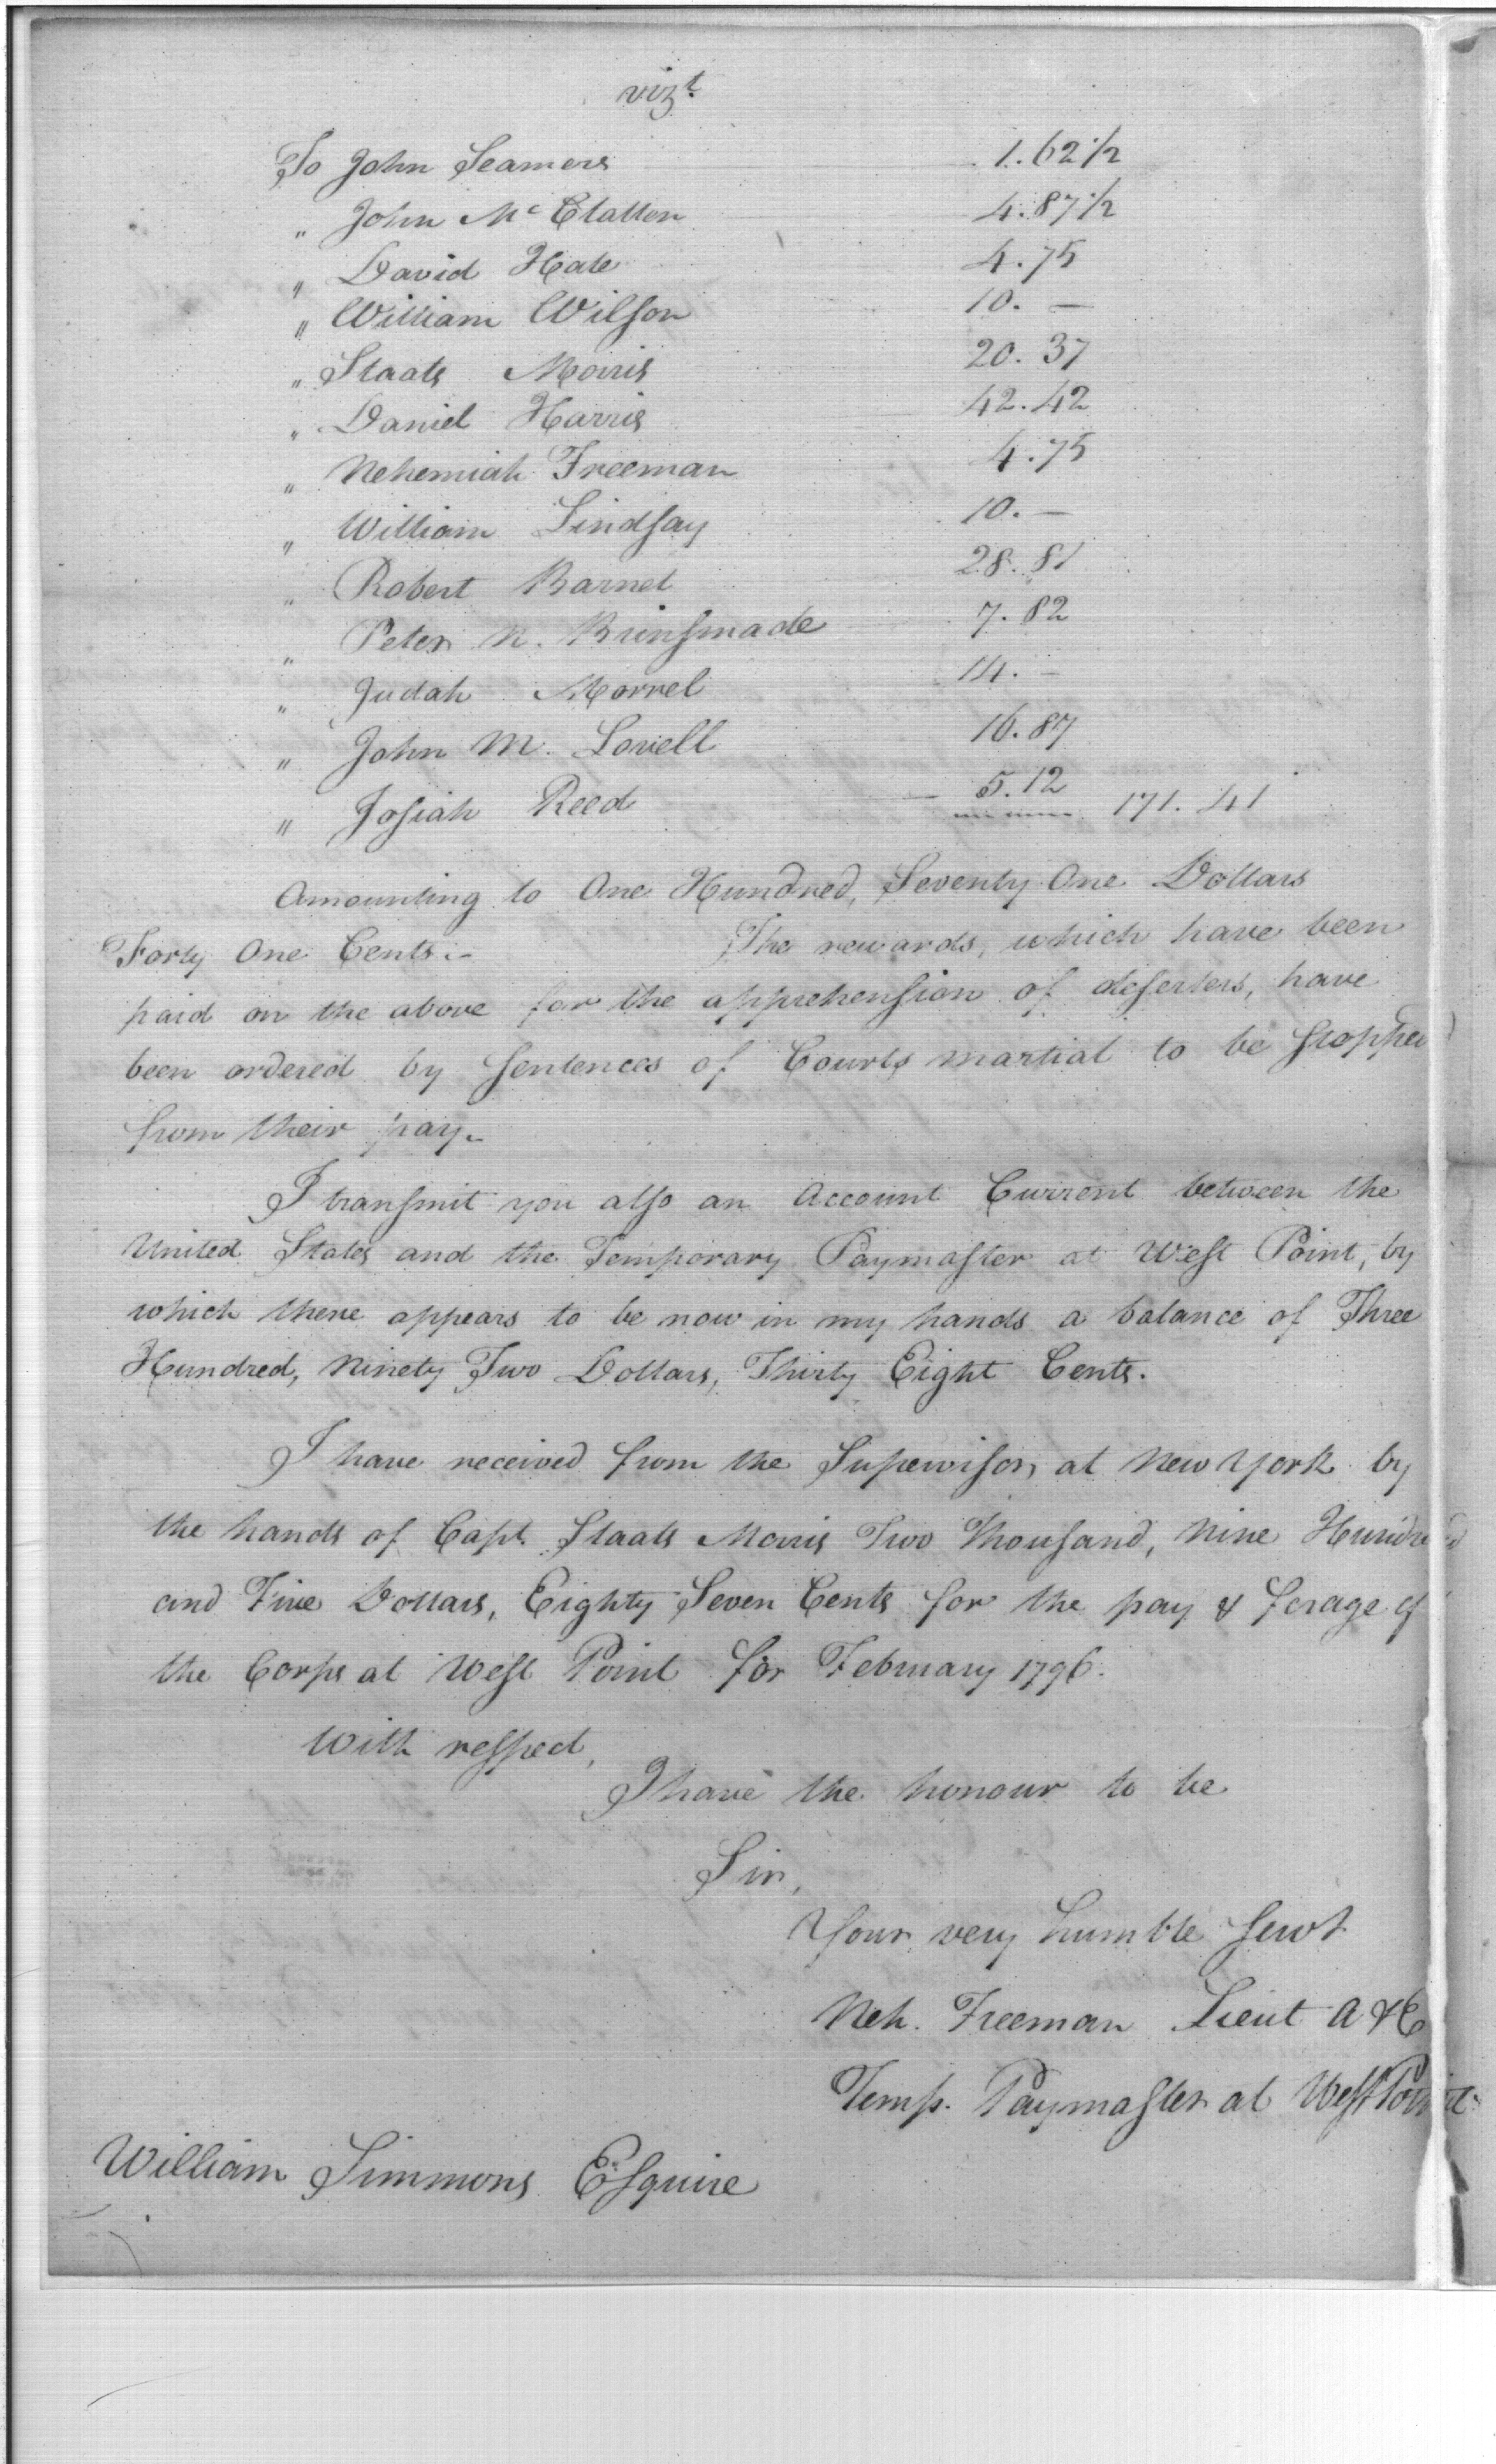 vizt
To John Seamers 1.62½
" John McClallen 4.87½
" David Hale 4.75
" William Wilson 10. —
" Staats Morris 20. 37
" Daniel Harris 42. 42
" Nehemiah Freeman 4. 75
" William Lindsay 10. —
" Robert Barnet 28. 81
" Peter N. Brinsmade 7. 82
" Judah Morrel 14. —
" John M. Lovell 16. 87
" Josiah Reed — 5. 12 171. 41
Amounting to One Hundred, Seventy One Dollars
Forty One Cents:- The rewards, which have been
paid on the above for the apprehension of deserters, have
been ordered by sentences of Courts martial to be stopped
from their pay.
I transmit you also an Account Current between the
United States and the Temporary Paymaster at West Point, by
which there appears to be now in my hands a balance of Three
Hundred, Ninety Two Dollars, Thirty Eight Cents.
I have received from the Supervisor, at New York by
the hands of Capt. Staats Morris Two Thousand, Nine Hundred
and Five Dollars, Eighty Seven Cents for the pay & forage of
the Corps at West Point for February 1796.
With respect,
I have the honour to be
Sir,
Your very humble servt
Neh. Freeman Lieut A & E
Temp. Paymaster at West Point
William Simmons Esquire